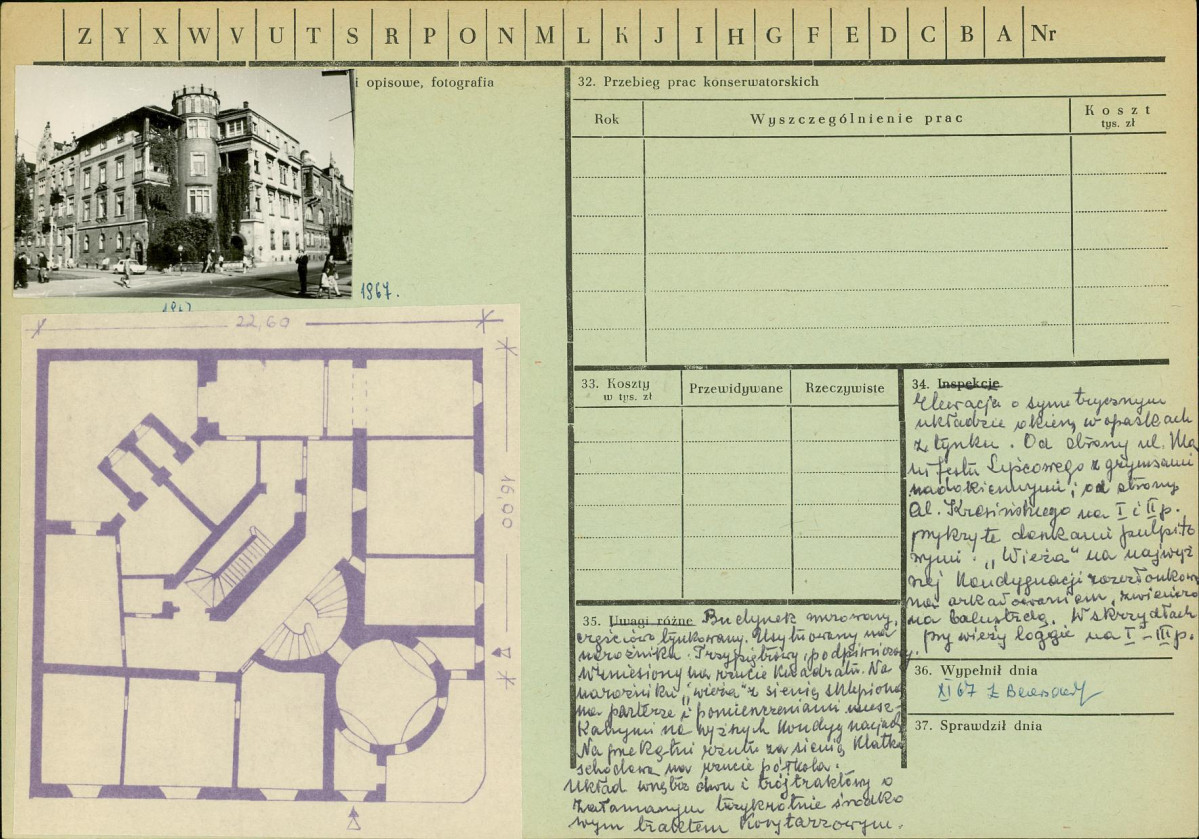 Z Y X W V U T S R P O N M L K J I H G F E D C B A Nr
i opisowe, fotografia
1867.
22,60
16,00
32. Przebieg prac konserwatorskich
Rok
Wyszczególnienie prac
Koszt
tys. zł
33. Koszty
w tys. zł
Przewidywane
Rzeczywiste
34. Inspekcje
Elewacja o symetrycznym
układzie okien, w opaskach
z tynku. Od strony ul. Ma
nifestu Lipcowego z gzymsami
nadokiennymi; od strony
Al. Krasińskiego na I i II p.
przykryte daszkami pulpito
wymi. "Wieża" na najwyż
szej kondygnacji rozczłonkowa
na arkadowaniem, zwieńczo
na balustradą. W skrzydłach
przy wieży loggie na I - III p.
35. Uwagi różne
Budynek murowany,
częściowo tynkowany. Usytuowany na
narożniku. Trzypiętrowy, podpiwniczony.
Wzniesiony na rzucie kwadratu. Na
narożniku "wieża" z sienią sklepioną
na parterze i pomieszczeniami miesz
kalnymi na wyższych kondygnacjach
Na przekątni rzutu za sienią klatka
schodowa na rzucie półkola.
Układ wnętrz dwu i trójtraktowy o
załamanym trzykrotnie środko
wym traktem korytarzowym.
36. Wypełnił dnia
XI 67
37. Sprawdził dnia